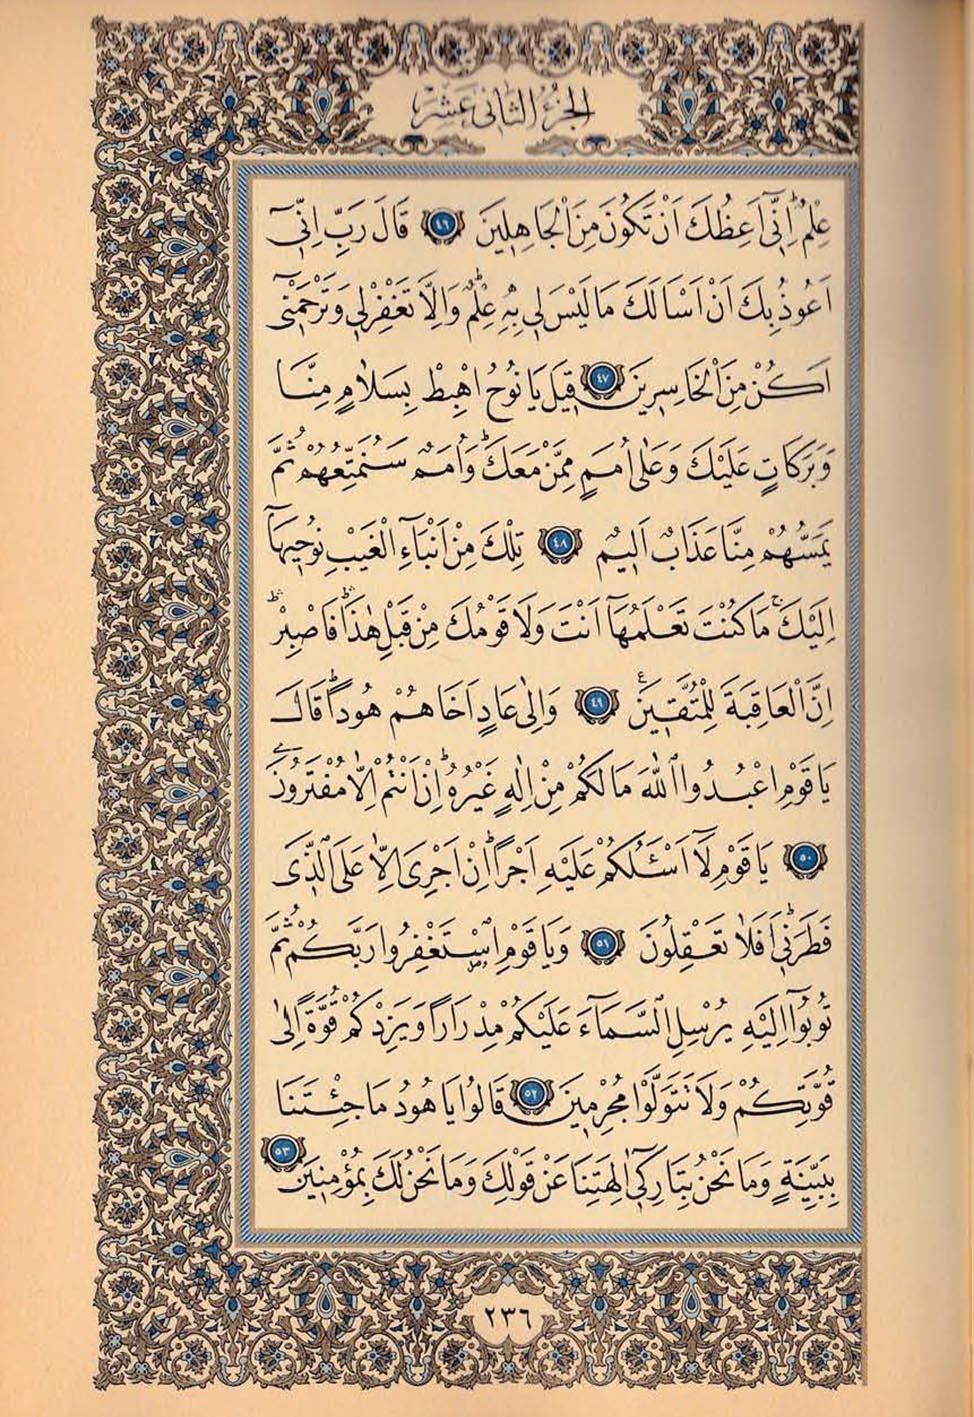 الجزء الثانى عشر
عِلْمٌۜ اِنّ۪ٓي اَعِظُكَ اَنْ تَكُونَ مِنَ الْجَاهِل۪ينَ ٤٦ قَالَ رَبِّ اِنّ۪ٓي
اَعُوذُ بِكَ اَنْ اَسْاَلَكَ مَا لَيْسَ ل۪ي بِه۪ عِلْمٌۜ وَاِلَّا تَغْفِرْ ل۪ي وَتَرْحَمْن۪ٓي
اَكُنْ مِنَ الْخَاسِر۪ينَ ٤٧ ق۪يلَ يَا نُوحُ اهْبِطْ بِسَلَامٍ مِنَّا
وَبَرَكَاتٍ عَلَيْكَ وَعَلٰٓى اُمَمٍ مِمَّنْ مَعَكَۜ وَاُمَمٌ سَنُمَتِّعُهُمْ ثُمَّ
يَمَسُّهُمْ مِنَّا عَذَابٌ اَل۪يمٌ ٤٨ تِلْكَ مِنْ اَنْبَٓاءِ الْغَيْبِ نُوح۪يهَٓا
اِلَيْكَۚ مَا كُنْتَ تَعْلَمُهَٓا اَنْتَ وَلَا قَوْمُكَ مِنْ قَبْلِ هٰذَاۜ فَاصْبِرْۜ
اِنَّ الْعَاقِبَةَ لِلْمُتَّق۪ينَ۟ ٤٩ وَاِلٰى عَادٍ اَخَاهُمْ هُوداًۜ قَالَ
يَا قَوْمِ اعْبُدُوا اللّٰهَ مَا لَكُمْ مِنْ اِلٰهٍ غَيْرُهُۜ اِنْ اَنْتُمْ اِلَّا مُفْتَرُونَ
٥٠ يَا قَوْمِ لَٓا اَسْـَٔلُكُمْ عَلَيْهِ اَجْراًۜ اِنْ اَجْرِيَ اِلَّا عَلَى الَّذ۪ي
فَطَرَن۪يۜ اَفَلَا تَعْقِلُونَ ٥١ وَيَا قَوْمِ اسْتَغْفِرُوا رَبَّكُمْ ثُمَّ
تُوبُٓوا اِلَيْهِ يُرْسِلِ السَّمَٓاءَ عَلَيْكُمْ مِدْرَاراً وَيَزِدْكُمْ قُوَّةً اِلٰى
قُوَّتِكُمْ وَلَا تَتَوَلَّوْا مُجْرِم۪ينَ ٥٢ قَالُوا يَا هُودُ مَا جِئْتَنَا
بِبَيِّنَةٍ وَمَا نَحْنُ بِتَارِك۪ٓي اٰلِهَتِنَا عَنْ قَوْلِكَ وَمَا نَحْنُ لَكَ بِمُؤْمِن۪ينَ ٥٣
٢٣٦